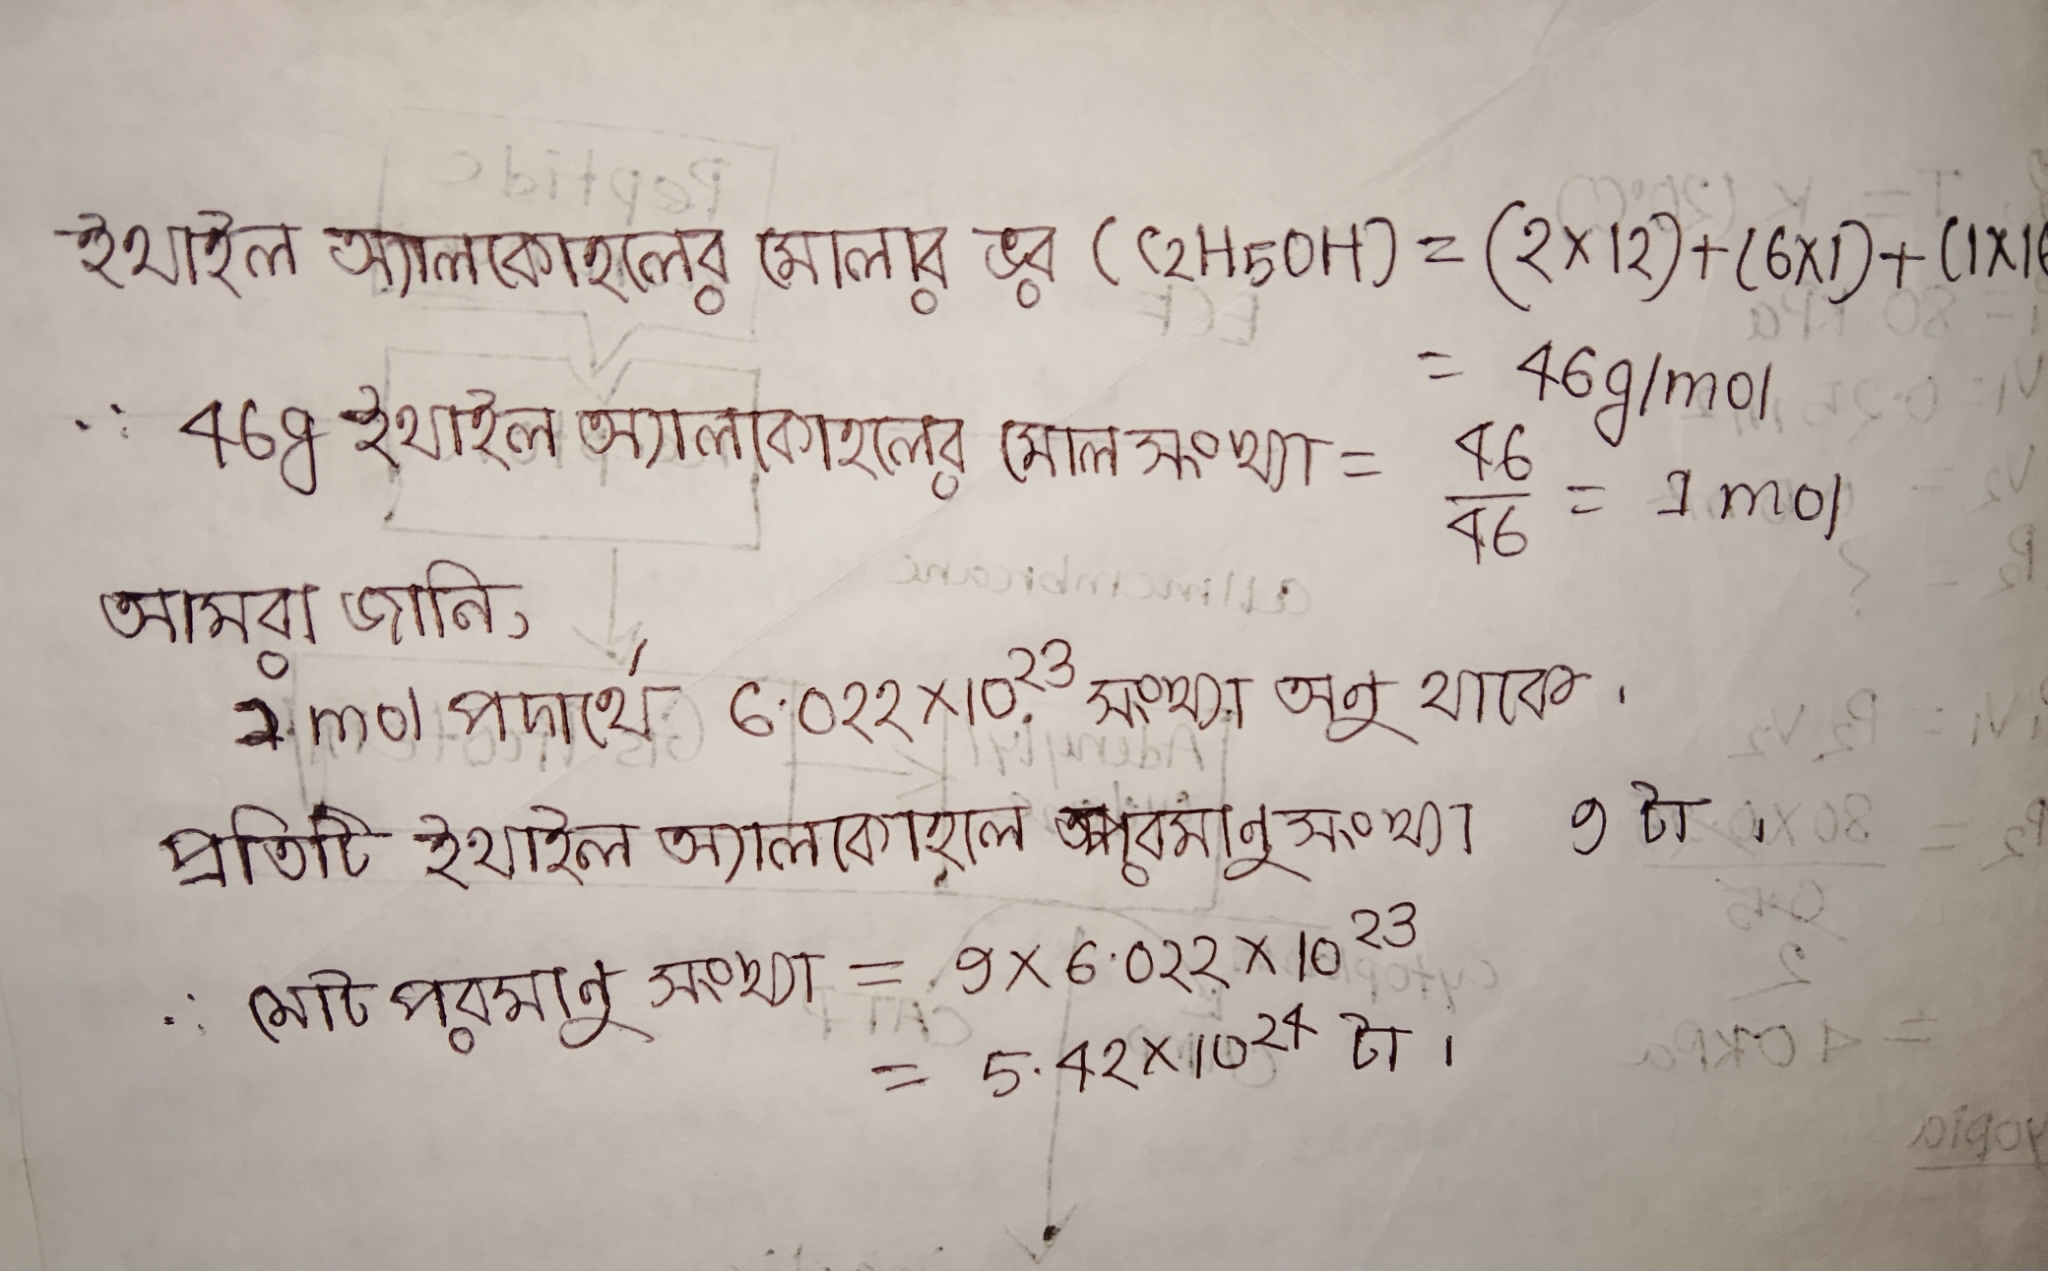 ইথাইল অ্যালকোহলের মোলার ভর (C2H5OH) = (2×12)+(6×1)+(1×16
= 46g/mol
∴ 46g ইথাইল অ্যালকোহলের মোল সংখ্যা = 46/46 = 1 mol
আমরা জানি,
1 mol পদার্থে 6.022×10^23 সংখ্যা অনু থাকে।
প্রতিটি ইথাইল অ্যালকোহলে পরমানু সংখ্যা 9 টা।
∴ মোট পরমানু সংখ্যা = 9×6.022×10^23
= 5.42×10^24 টা।